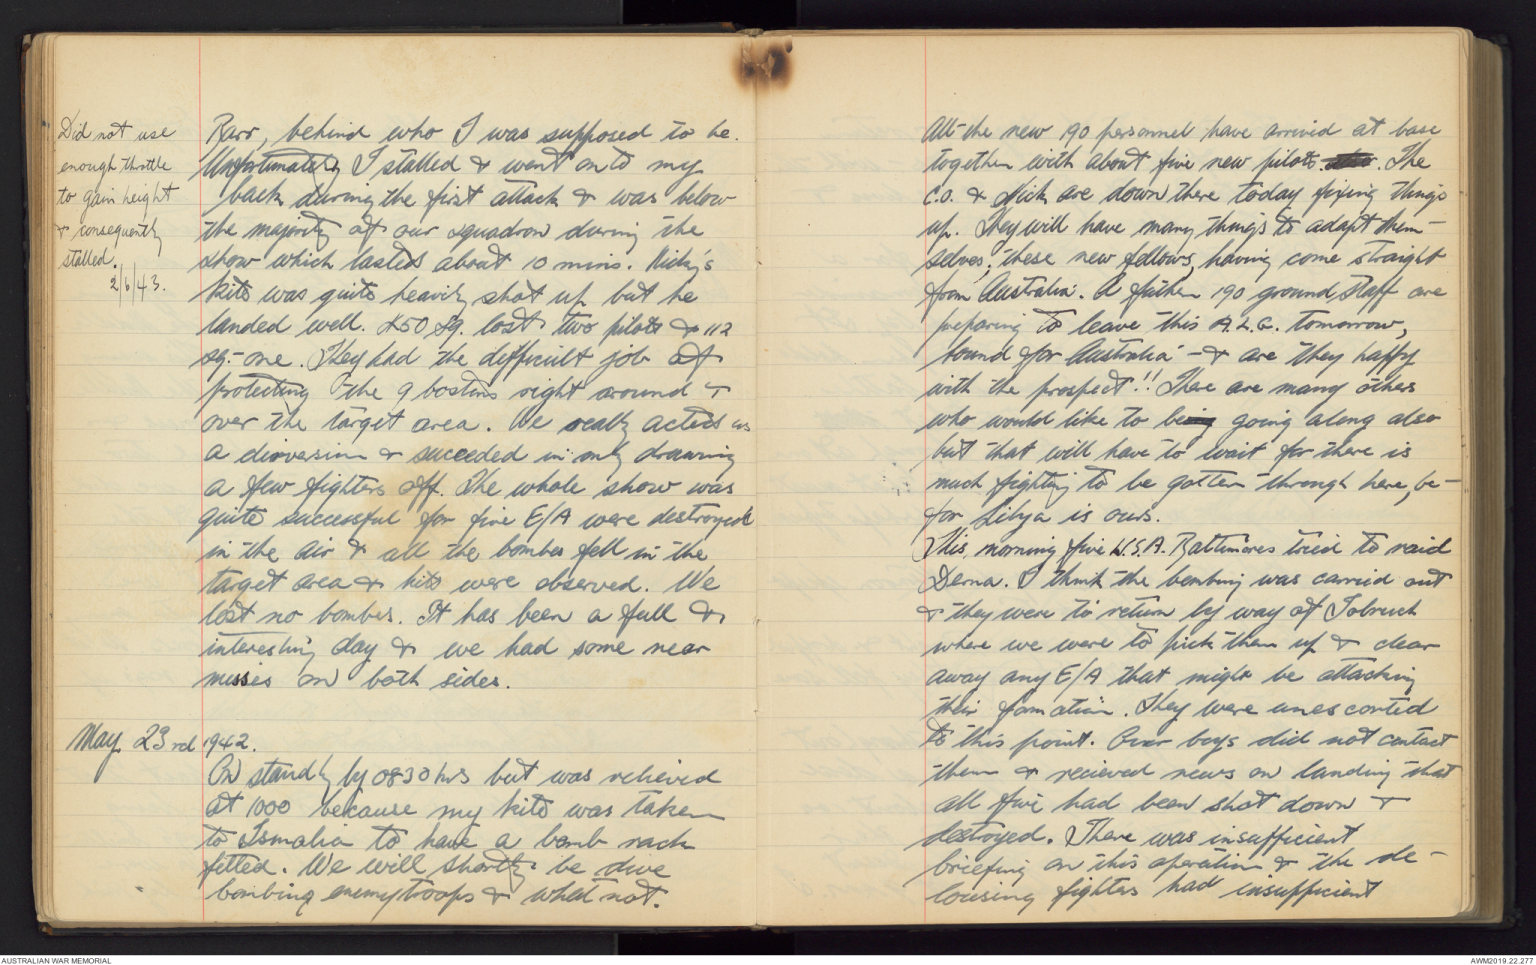 Did not use
enough throttle
to gain height
& consequently
stalled.
2/6/43.
Barr, behind who I was supposed to be.
Unfortunately I stalled & went on to my
back during the first attack & was below
the majority of our squadron during the
show which lasted about 10 mins. Nicky's
kite was quite heavily shot up but he
landed well. 450 Sq. lost two pilots & 112
sq - one. They had the difficult job of
protecting the 9 bostons right around &
over the target area. We really acted as
a dioversion & succeeded in only drawing
a few fighters off. The whole show was
quite successful for five E/A were destroyed
in the air & all the bombs fell in the
target area & hits were observed. We
lost no bombers. It has been a full &
interesting day & we had some near
misses on both sides.
May 23rd 1942.
On standby by 0830 hrs but was relieved
at 1000 because my kite was taken
to Ismalia to have a bomb rack
fitted. We will shortly be dive
bombing enemy troops & what not.
All the new 190 personnel have arrived at base
together with about five new pilots. The
C.O. & Nick are down there today fixing things
up. They will have many things to adapt them-
selves, these new fellows, having come straight
from Australia. A further 190 ground staff are
preparing to leave this A.L.G. tomorrow,
bound for Australia - & are they happy
with the prospect!! There are many others
who would like to be going along also
but that will have to wait for there is
much fighting to be gotten through here, be-
for Libya is ours.
This morning five U.S.A. Baltimores tried to raid
Derna. I think the bombing was carried out
& they were to return by way of Tobruch
where we were to pick them up & clear
away any E/A that might be attacking
their formation. They were unescorted
to this point. Our boys did not contact
them & recieved news on landing that
all five had been shot down &
destroyed. There was insufficient
briefing on this operation & the de-
lousing fighters had insufficient
AUSTRALIAN WAR MEMORIAL
AWM2019.22.277